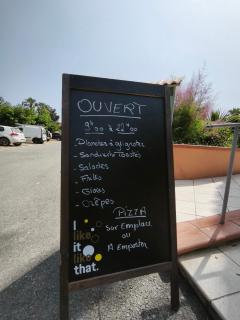 OUVERT
9h00 à 22h00
- Planches à grignoter
- Sandwichs Toastés
- Salades
- Frites
- Glaces
- Crêpes
PIZZA
Sur Emplace
ou
A Emporter
I
like
it
like
that.